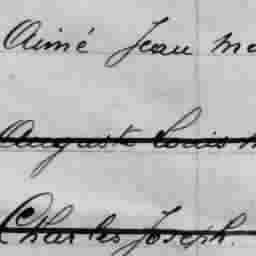 Aimé Jean Ma
Auguste Louis M
Charles Joseph.